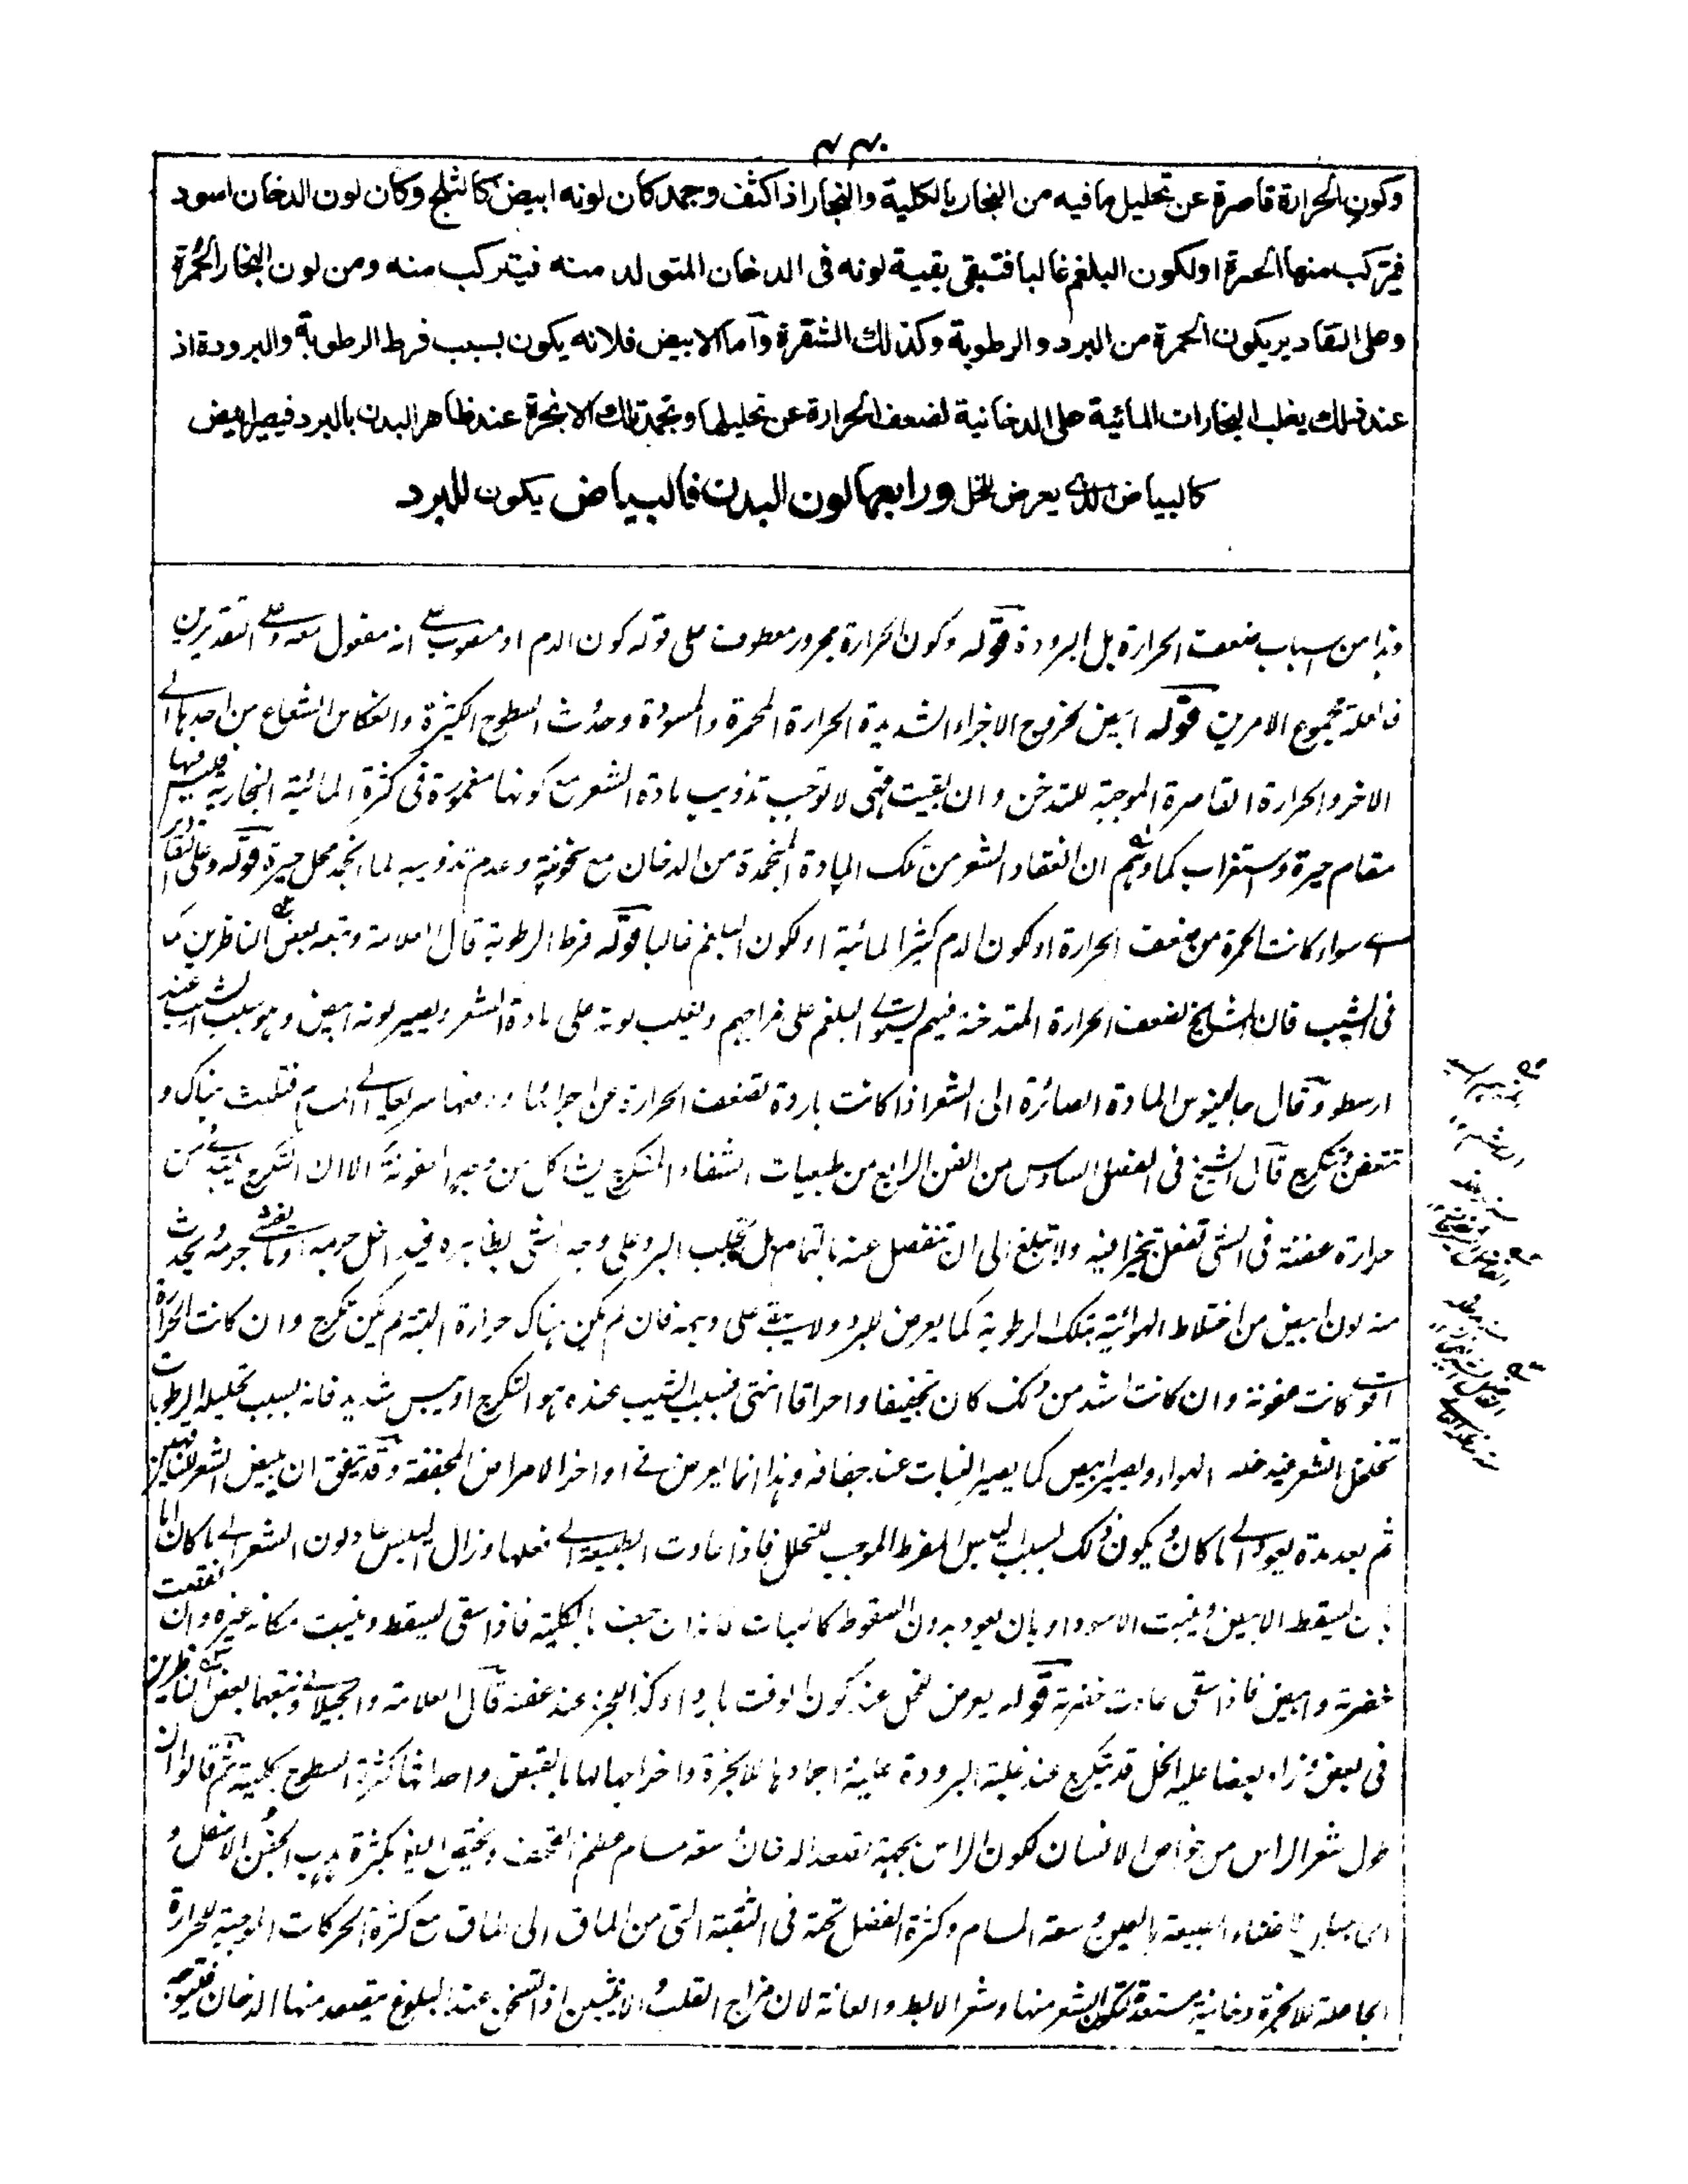 وكون الحرارة قاصرة عن تحليل ما فيه من البخار بالكلية والبخار اذا كثف وجمد كان لونه ابيض كالثلج وكان لون الدخان اسود
فيتركب منها الحمرة او لكون البلغم غالبا فتبقى بقية لونه فى الدخان المتولد منه فيتركب منه ومن لون البخار الحمرة
وعلى التقادير يكون الحمرة من البرد والرطوبة وكذلك الشقرة وآما الابيض فلانه يكون بسبب فرط الرطوبة والبرودة اذ
عند ذلك يغلب البخارات المائية على الدخانية لضعف الحرارة عن تحليلها وتجمد تلك الابخرة عند ظاهر البدن بالبرد فيصير ابيض
كالبياض الذى يعرض للخل ورابعها لون البدن فالبياض يكون للبرد
وهذا من اسباب ضعف الحرارة بل البرودة قوله وكون الحرارة مجرور معطوف على قوله كون الدم او منصوب على انه مفعول معه وعلى التقديرين
فالعلة مجموع الامرين قوله ابيض لخروج الاجزاء الشديدة الحرارة المحمرة والمسودة وحدوث السطوح الكثيرة وانعكاس الشعاع من احدها الى
الاخر والحرارة القاصرة الموجبة للتدخن وان بقيت فهى لا توجب تذويب مادة الشعر مع كونها مغمورة فى كثرة المائية البخارية فليس فيها
مقام حيرة واستغراب كما وهم ان انعقاد الشعر من تلك المادة المنجمدة من الدخان مع سخونته وعدم تذويبه لما انجمد محل حيرة قوله وعلى التقادير
اى سواء كانت الحمرة من ضعف الحرارة او لكون الدم كثير المائية او لكون البلغم غالبا قوله فرط الرطوبة قال العلامة وتبعه بعض الناظرين كما
فى الشيب فان المشايخ لضعف الحرارة المتدخنة فيهم يستولى البلغم على مزاجهم ويغلب لونه على مادة الشعر ويصير لونه ابيض وهو سبب الشيب عند
ارسطو وقال جالينوس المادة الصائرة الى الشعر اذا كانت باردة تضعف الحرارة عن اخراجها ودفعها سريعا الى المسام فتلبث هناك و
تتعفن وتتكرج قال الشيخ فى الفصل السادس من الفن الرابع من طبيعيات الشفاء المتكرج يشاكل من وجه العفونة الا ان التكرج يبتدئ من
حرارة عفنة فى الشئ تفعل تبخيرا فيه ولا تبلغ الى ان تنفصل عنه بالتمام بل يجلب البرد على وجه الشئ بظاهره فيداخل جرمه او ما يغشى جرمه يحدث
منه لون ابيض من اختلاط الهوائية بتلك الرطوبة كما يعرض للزبد ولا يبقى على وجهه فان لم يكن هناك حرارة البتة لم يكن تكرج وان كانت الحرارة
اقوى كانت عفونة وان كانت اشد من ذلك كان تجفيفا واحراقا انتهى فسبب الشيب عنده هو التكرج او يبس شديد فانه بسبب تحليله الرطوبات
تخلخل الشعر فيدخله الهواء ويصير ابيض كما يصير النبات عند جفافه وهذا انما يعرض فى اواخر الامراض المجففة وقد يتفق ان يبيض الشعر للناقهين
ثم بعد مدة يعود الى ما كان ويكون ذلك بسبب اليبس المفرط الموجب للتخلخل فاذا عادت الطبيعة الى فعلها وزال اليبس عاد لون الشعر الى ما كان اما
بان يسقط الابيض وينبت الاسود او بان يعود بدون السقوط كالنبات فانه ان جف بالكلية فاذا سقى يسقط وينبت مكانه غيره وان نقصت
خضرته وابيض فاذا سقى عادت خضرته قوله يعرض للخل عند كون الوقت باردا وكذا للخبز عند عفنه قال العلامة والجيلانى وتبعهما بعض الناظرين
فى بعض وزاد بعضا عليه الخل قد يتكرج عند غلبة البرودة عليه اجمادها للابخرة واخراجها لها بالقبض واحداثها كثرة السطوح بكلية ثم قالوا ان
طول شعر الراس من خواص الانسان لكون الراس بجهة تصعد الدخان وسعة مسام عظم القحف ويختص ايضا بكثرة هدب الجفن الاسفل و
اعتناء الطبيعة بالعين وسعة المسام وكثرة الفضل تحته فى الثقبة التى من الماق الى الماق مع كثرة الحركات الموجبة للحرارة
الجاعلة للابخرة دخانية مستعدة لتكون الشعر منها وشعر الابط والعانة لان مزاج القلب والانثيين اذا تسخن عند البلوغ يتصعد منها الدخان فيتوجه